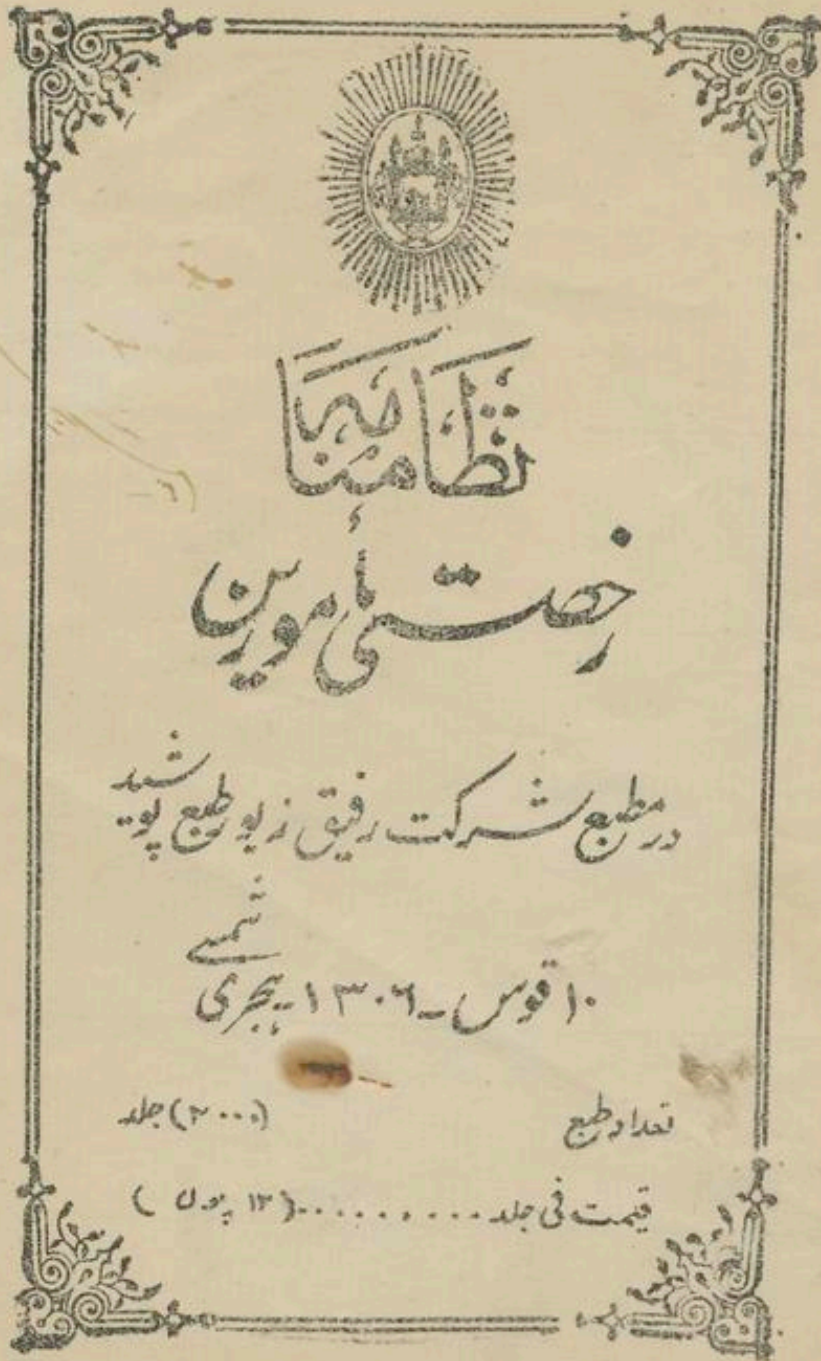 نظامنامه
رخصتی مأمورین
در مطبع شرکت رفیق زیور طبع پوشید
۱۰ قوس - ۱۳۰۶ - هجری شمسی
تعداد طبع (۲۰۰۰) جلد
قیمت فی جلد .......... (۱۲ پول)